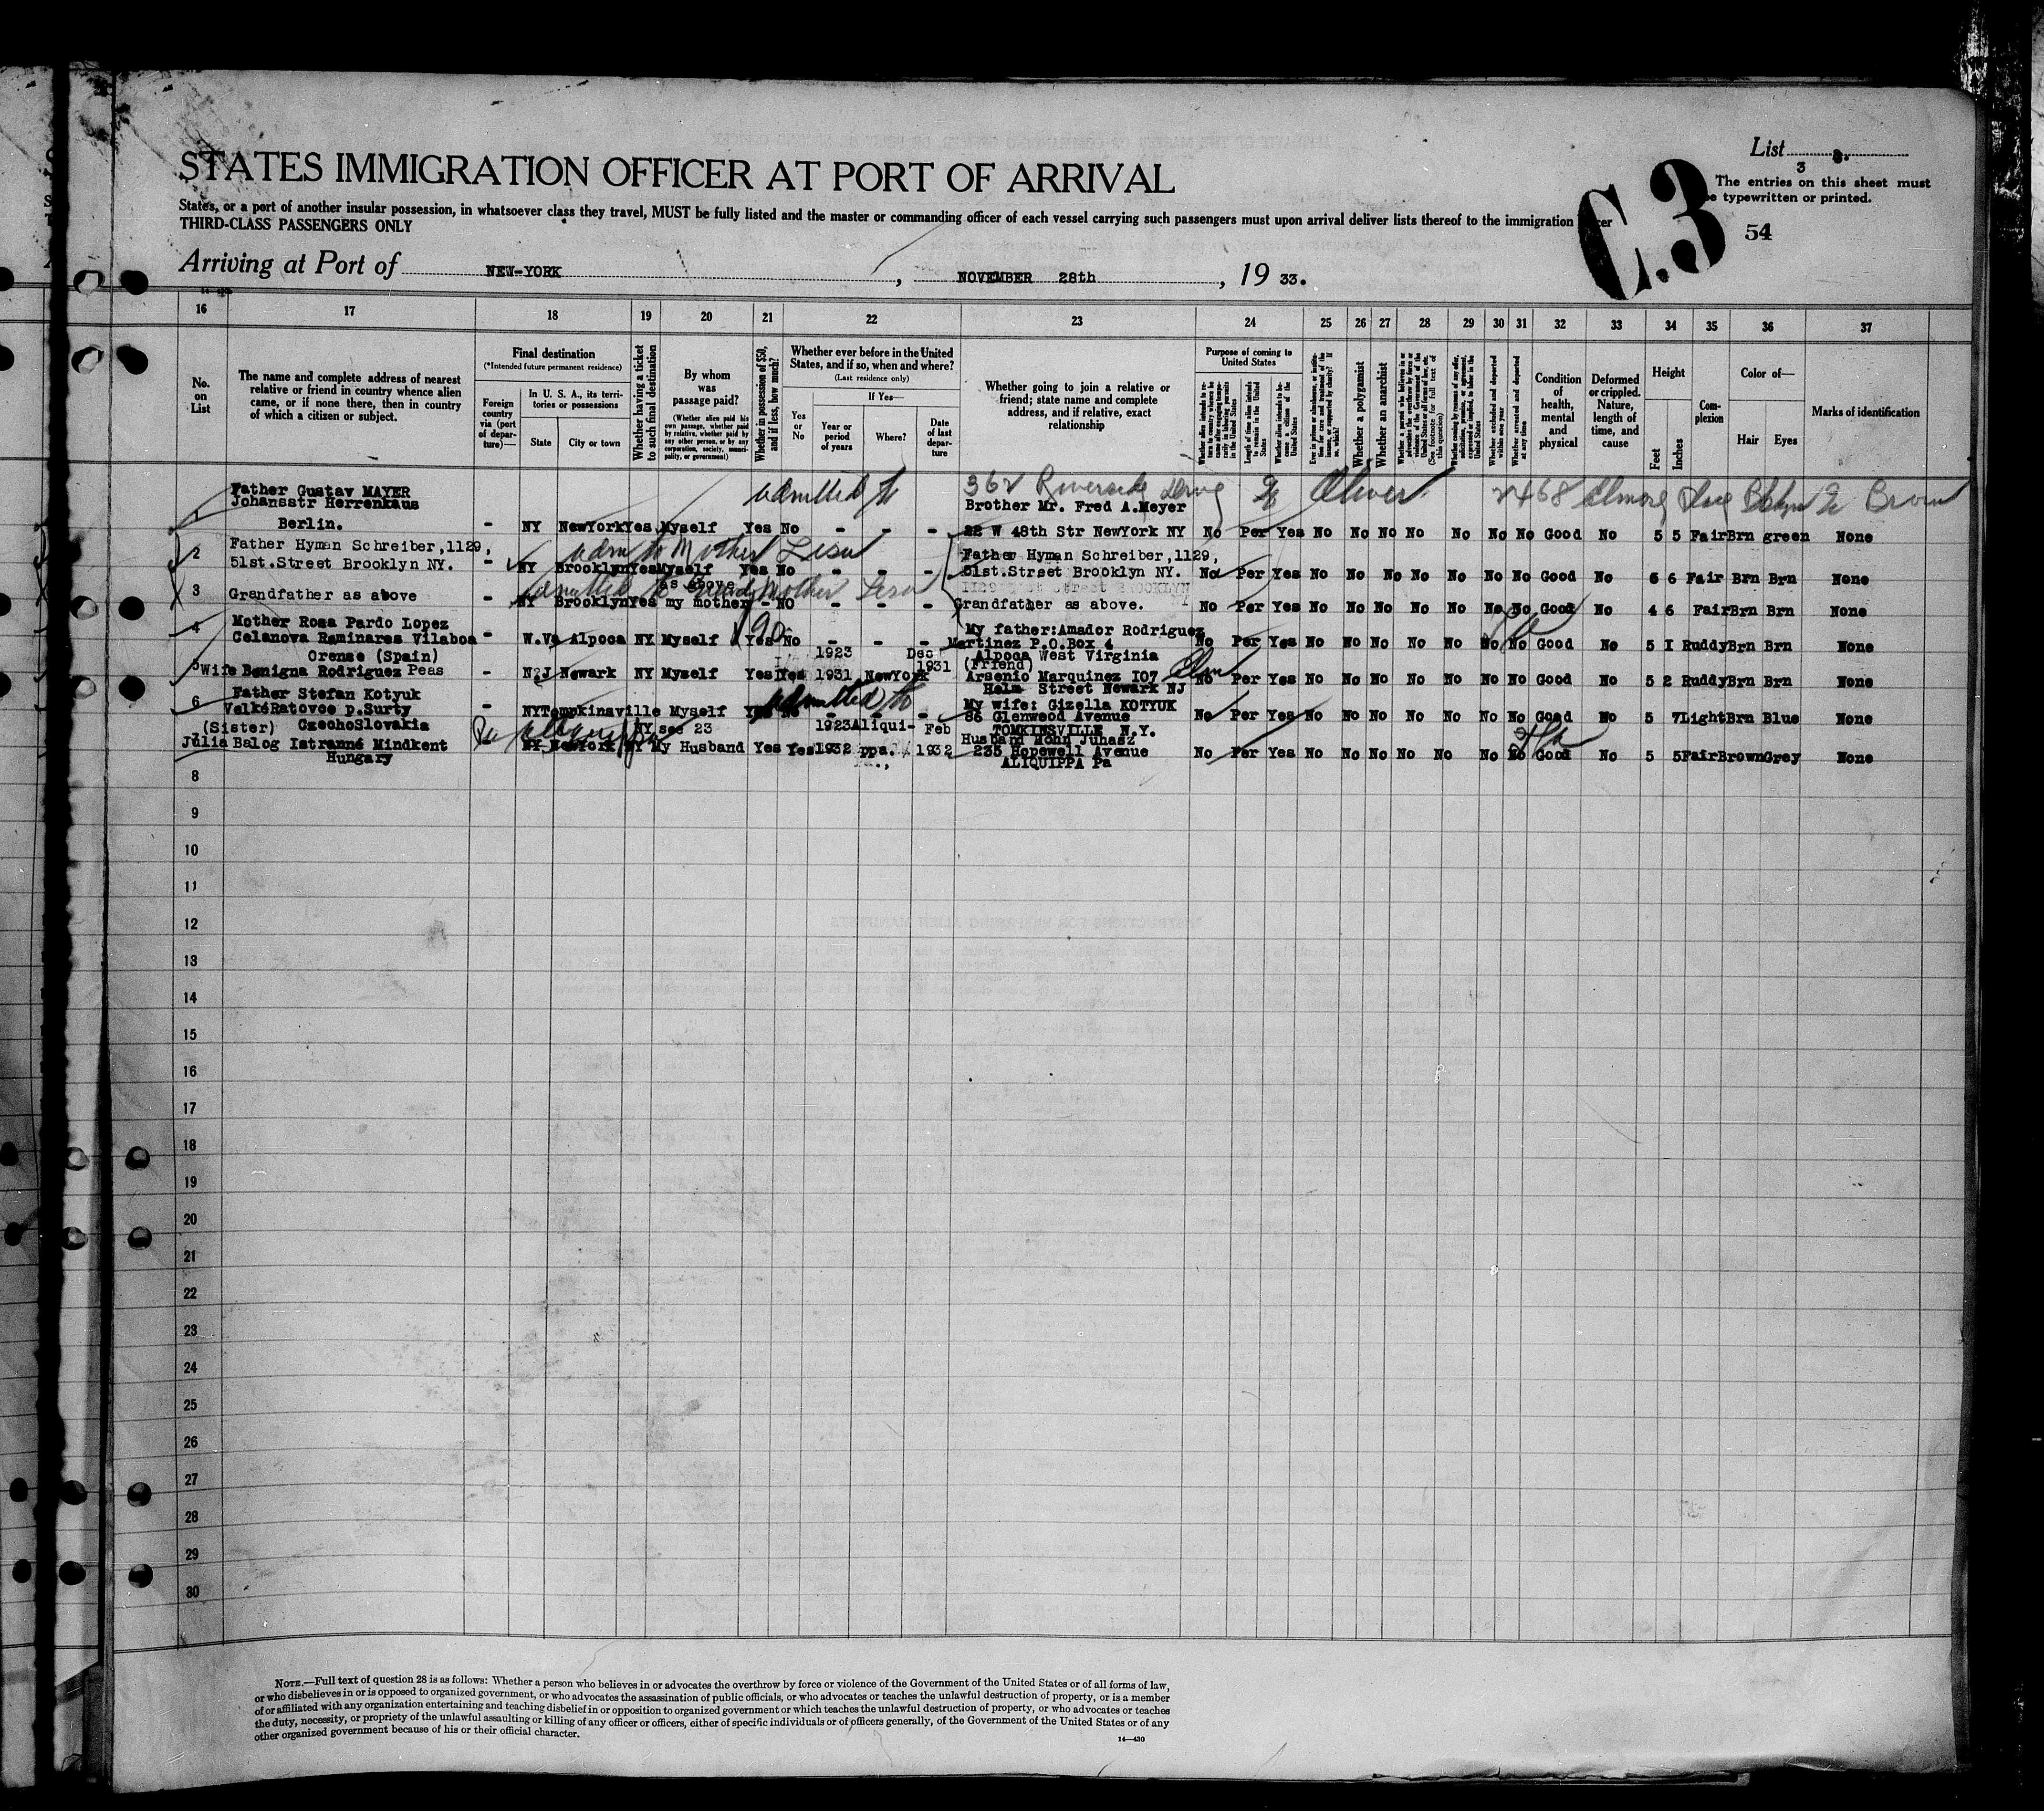 List 3
3
STATES IMMIGRATION OFFICER AT PORT OF ARRIVAL
The entries on this sheet must
be typewritten or printed.
States, or a port of another insular possession, in whatsoever class they travel, MUST be fully listed and the master or commanding officer of each vessel carrying such passengers must upon arrival deliver lists thereof to the immigration officer
THIRD-CLASS PASSENGERS ONLY
C.3
54
Arriving at Port of NEW-YORK, NOVEMBER 28th, 19 33.
16 17 18 19 20 21 22 23 24 25 26 27 28 29 30 31 32 33 34 35 36 37
No. on List
The name and complete address of nearest relative or friend in country whence alien came, or if none there, then in country of which a citizen or subject.
Final destination
(*Intended future permanent residence)
Foreign country via (port of departure)—
In U. S. A., its territories or possessions
State
City or town
Whether having a ticket to such final destination
By whom was passage paid?
(Whether alien paid his own passage, whether paid by relative, whether paid by any other person, or by any corporation, society, municipality, or government)
Whether in possession of $50, and if less, how much?
Whether ever before in the United States, and if so, when and where?
(Last residence only)
Yes or No
If Yes—
Year or period of years
Where?
Date of last departure
Whether going to join a relative or friend; state name and complete address, and if relative, exact relationship
Purpose of coming to United States
Length of time alien intends to remain in the United States
Whether alien intends to become a citizen of the United States
Whether a polygamist
Whether an anarchist
(See footnote for full text of this question)
Whether arrested and deported at any time
Condition of health, mental and physical
Deformed or crippled. Nature, length of time, and cause
Height
Feet
Inches
Complexion
Color of—
Hair
Eyes
Marks of identification
admitted to 362 Riverside Oliver 2468 Brown
Father Gustav MAYER
Johansstr Herrenkaus
Brother Mr. Fred A.Meyer
1 Berlin. - NY NewYork Yes Myself Yes No - - - 22 W 48th Str NewYork NY No Per Yes No No No No No No No Good No 5 5 Fair Brn green None
adm to Mother
2 Father Hyman Schreiber,1129,
51st.Street Brooklyn NY. - NY Brooklyn Yes Myself Yes No - - - Father Hyman Schreiber,1129,
51st.Street Brooklyn NY. No Per Yes No No No No No No No Good No 5 6 Fair Brn Brn None
admitted to Mother
as above
3 Grandfather as above - NY Brooklyn Yes my mother - NO - - - Grandfather as above. No Per Yes No No No No No No No Good No 4 6 Fair Brn Brn None
90
4 Mother Rosa Pardo Lopez
Celanova Raminares Vilaboa
Orense (Spain) - W.Va Alpoca NY Myself Yes No - - - My father:Amador Rodriguez
Martinez P.O.Box 4
Alpoca West Virginia No Per Yes No No No No No No No Good No 5 I Ruddy Brn Brn None
5 Wife Benigna Rodriguez Peas - N.J Newark NY Myself Yes Yes 1923 1931 NewYork Dec 1931 (Friend)
Arsenio Marquinez I07
Helm Street Newark NJ No Per Yes No No No No No No No Good No 5 2 Ruddy Brn Brn None
admitted to
6 Father Stefan Kotyuk
VelkéRatovce p.Surty
CzechoSlovakia - NY Tompkinsville Myself Yes No - - - My wife: Gizella KOTYUK
86 Glenwood Avenue
TOMKINSVILLE N.Y. No Per Yes No No No No No No No Good No 5 7 Light Brn Blue None
7 (Sister)
Julia Balog Istranné Mindkent
Hungary Pa Aliquippa NY NewYork NY see 23 My Husband Yes Yes 1923 1932 Aliquippa Pa., Feb 1932 Husband John Juhasz
235 Hopewell Avenue
ALIQUIPPA Pa No Per Yes No No No No No No No Good No 5 5 Fair Brown Grey None
8
9
10
11
12
13
14
15
16
17
18
19
20
21
22
23
24
25
26
27
28
29
30
NOTE.—Full text of question 28 is as follows: Whether a person who believes in or advocates the overthrow by force or violence of the Government of the United States or of all forms of law,
or who disbelieves in or is opposed to organized government, or who advocates the assassination of public officials, or who advocates or teaches the unlawful destruction of property, or is a member
of or affiliated with any organization entertaining and teaching disbelief in or opposition to organized government or which teaches the unlawful destruction of property, or who advocates or teaches
the duty, necessity, or propriety of the unlawful assaulting or killing of any officer or officers, either of specific individuals or of officers generally, of the Government of the United States or of any
other organized government because of his or their official character.
14—430